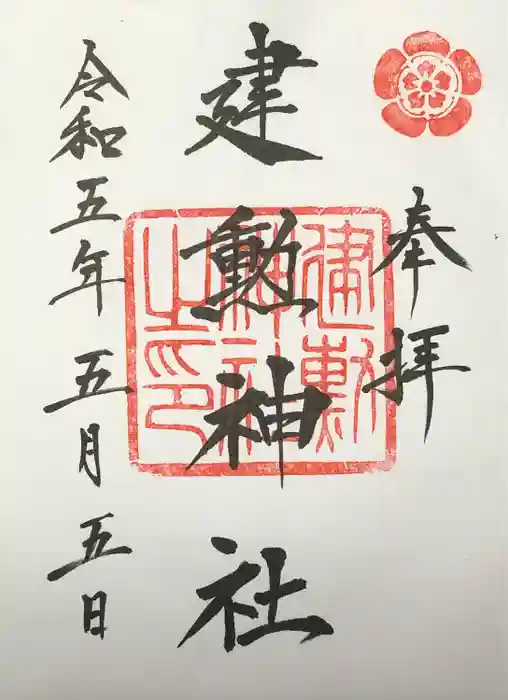 奉拝
建勲神社
建勲
神社
之印
令和五年五月五日